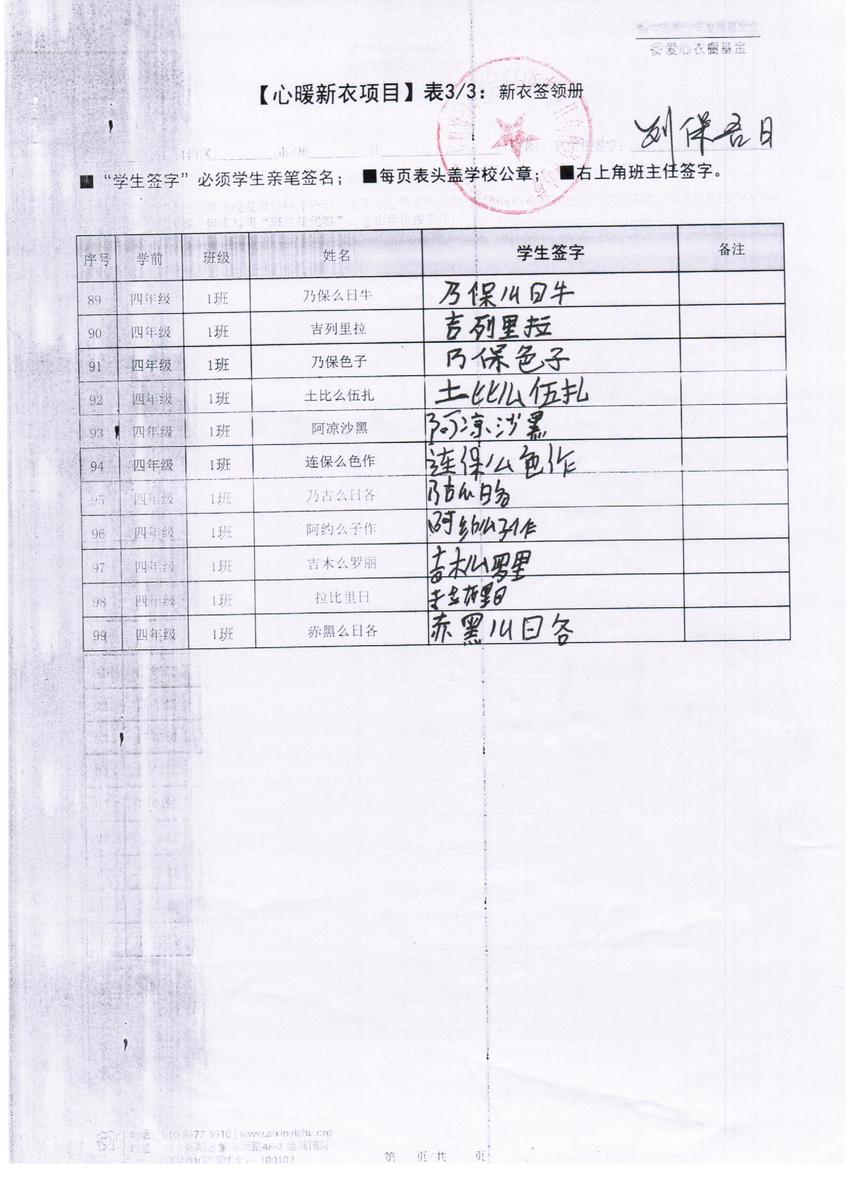 爱心衣橱基金
【心暖新衣项目】表3/3：新衣签领册
■“学生签字”必须学生亲笔签名； ■每页表头盖学校公章； ■右上角班主任签字。
序号 学前 班级 姓名 学生签字 备注
89 四年级 1班 乃保么日牛 乃保么日牛
90 四年级 1班 吉列里拉 吉列里拉
91 四年级 1班 乃保色子 乃保色子
92 四年级 1班 土比么伍扎 土比么伍扎
93 四年级 1班 阿凉沙黑 阿凉沙黑
94 四年级 1班 连保么色作 连保么色作
95 四年级 1班 乃古么日各 乃古么日各
96 四年级 1班 阿约么子作 阿约么子作
97 四年级 1班 吉木么罗丽 吉木么罗里
98 四年级 1班 拉比里日
99 四年级 1班 赤黑么日各 赤黑么日各
电话 010-8477-5910 | www.aixinyichu.org
100102
第 页/共 页